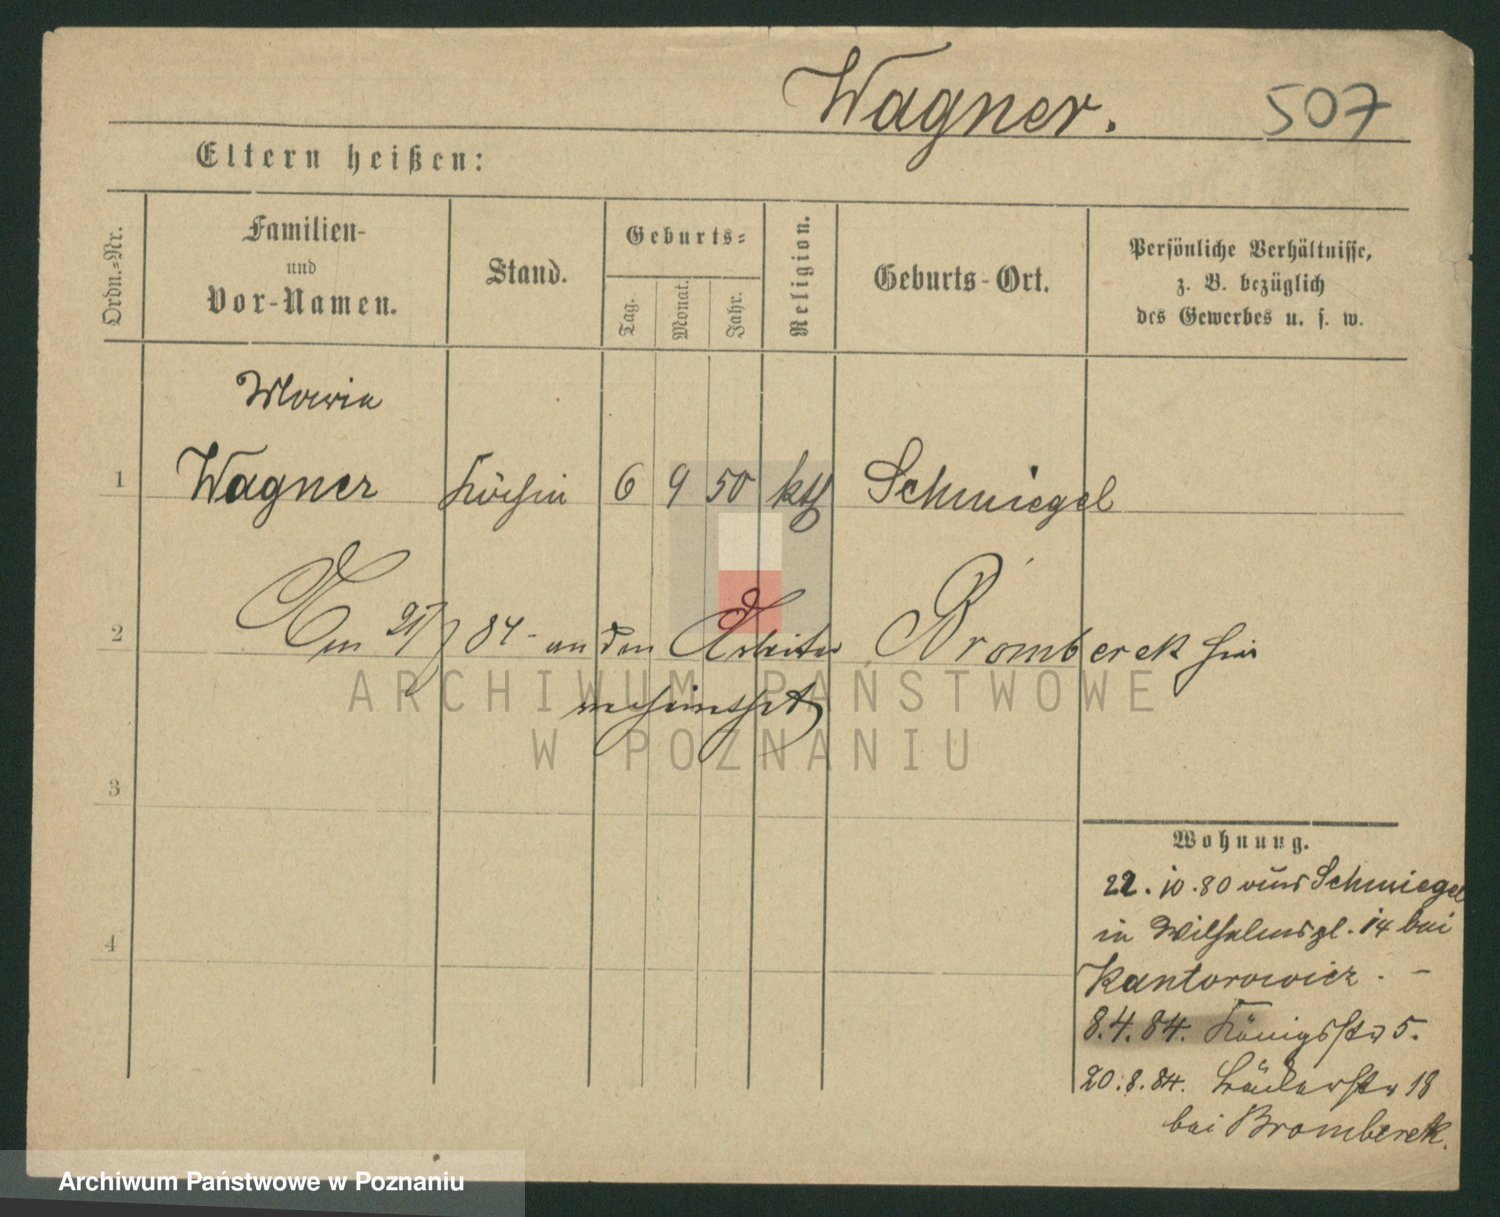 Wagner.
507
Eltern heißen:
Ordn.-Nr.
Familien-
und
Vor-Namen.
Stand.
Geburts-
Tag.
Monat.
Jahr.
Religion.
Geburts-Ort.
Persönliche Verhältnisse,
z. B. bezüglich
des Gewerbes u. s. w.
Maria
1 Wagner Köchin 6 9 50 kth Schmiegel
2 Am 84 an den Arbeiter Bromberek hier
3
4
ARCHIWUM PAŃSTWOWE
W POZNANIU
Wohnung.
22. 10. 80 aus Schmiegel
in Wilhelmspl. 14 bei
Kantorowicz. -
8.4.84. Königsstr 5.
20.8.84. 18
bei Bromberek.
Archiwum Państwowe w Poznaniu